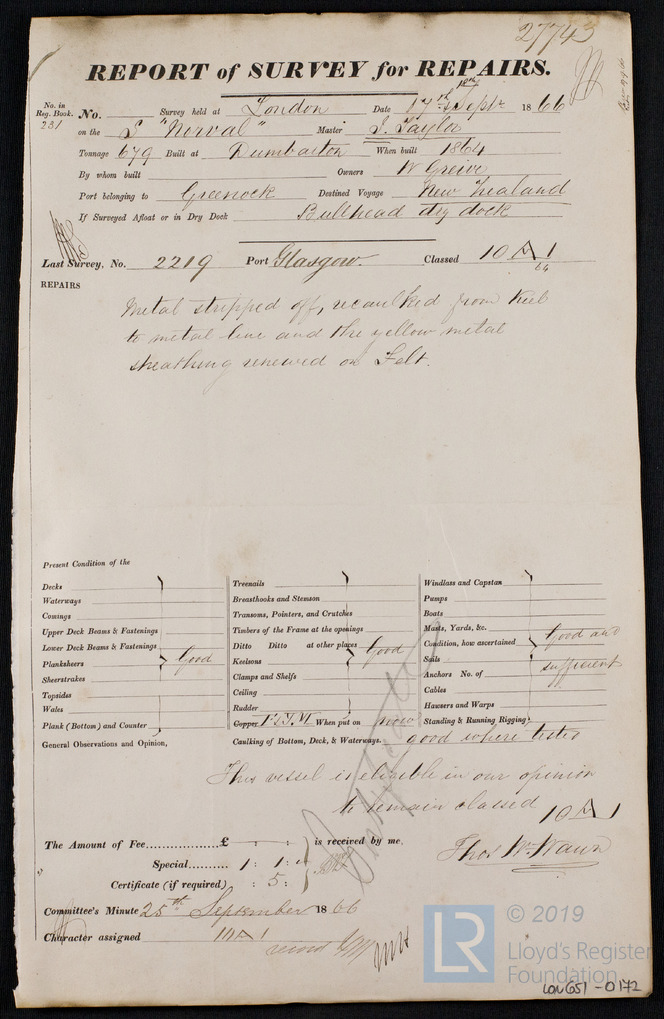 27743
REPORT of SURVEY for REPAIRS.
No. in Reg. Book. 231
No. Survey held at London Date 17th Septr 1866
on the S "Norval" Master J. Taylor
Tonnage 679 Built at Dumbarton When built 1864
By whom built Owners W Greive
Port belonging to Greenock Destined Voyage New Zealand
If Surveyed Afloat or in Dry Dock Bullhead dry dock
Last Survey, No. 2219 Port Glasgow. Classed 10 A 1
64
REPAIRS
Metal stripped off, recaulked from keel
to metal line and the yellow metal
sheathing renewed on Felt.
Present Condition of the
Decks
Waterways
Comings
Upper Deck Beams & Fastenings
Lower Deck Beams & Fastenings
Planksheers Good
Sheerstrakes
Topsides
Wales
Plank (Bottom) and Counter
Treenails
Breasthooks and Stemson
Transoms, Pointers, and Crutches
Timbers of the Frame at the openings
Ditto Ditto at other places Good
Keelsons
Clamps and Shelfs
Ceiling
Rudder
Copper When put on now
Windlass and Capstan
Pumps
Boats
Masts, Yards, &c.
Condition, how ascertained Good and
Sails sufficient
Anchors No. of
Cables
Hawsers and Warps
Standing & Running Rigging
General Observations and Opinion, Caulking of Bottom, Deck, & Waterways. good where tested
This vessel is eligible in our opinion
to remain classed 10 A 1
The Amount of Fee £ : : is received by me,
Special 1 : 1 :
Certificate (if required) : 5 :
Thos W. Wawn
Committee's Minute 25th September 1866
Character assigned 10 A 1
record
LR © 2019
Lloyd's Register
Foundation
LON651-0172